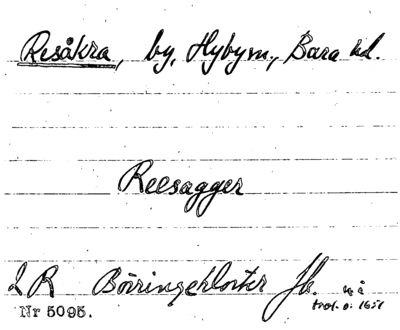 Resåkra, by, Hyby sn., Bara hd.
Reesagger
LR Börringekloster Jb.
Nr 5095.